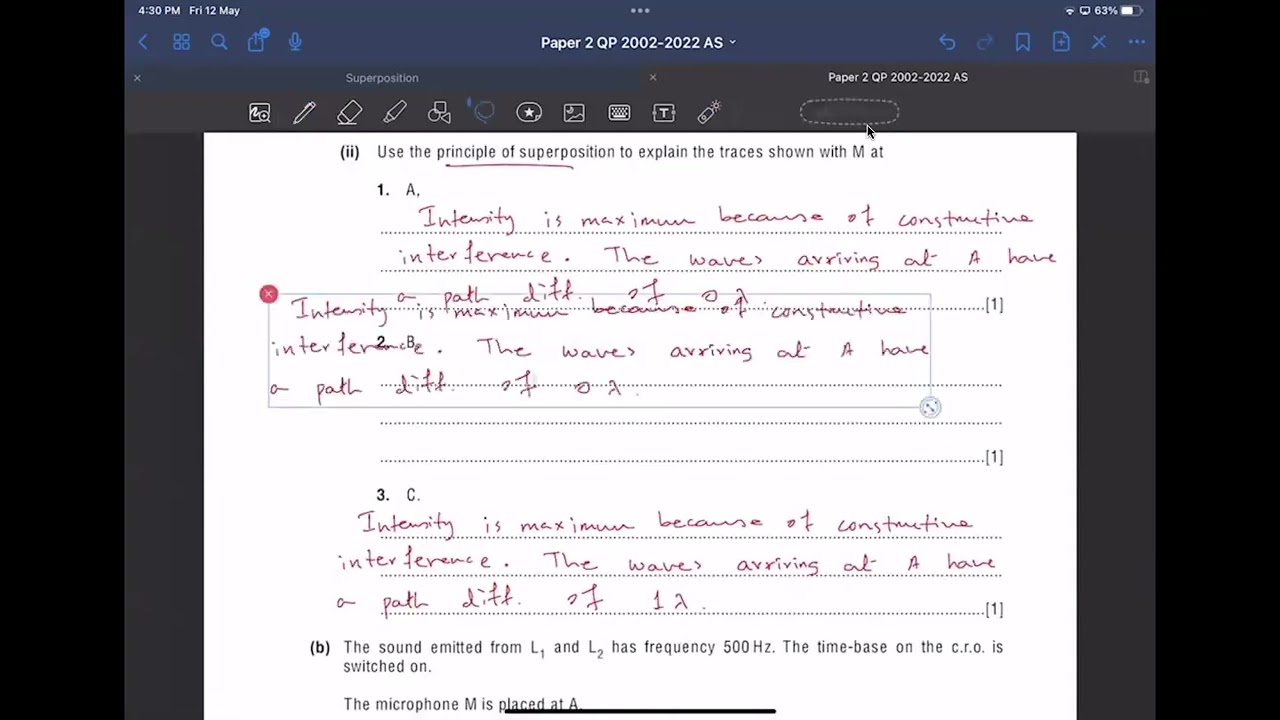 4:30 PM Fri 12 May
63%
Paper 2 QP 2002-2022 AS
Superposition
Paper 2 QP 2002-2022 AS
(ii) Use the principle of superposition to explain the traces shown with M at
1. A,
Intensity is maximum because of constructive
interference. The waves arriving at A have
a path diff. of 0 λ
[1]
Intensity is maximum because of constructive
2. B,
interference. The waves arriving at A have
a path diff. of 0 λ.
[1]
3. C.
Intensity is maximum because of constructive
interference. The waves arriving at A have
a path diff. of 1 λ.
[1]
(b) The sound emitted from L1 and L2 has frequency 500 Hz. The time-base on the c.r.o. is
switched on.
The microphone M is placed at A.